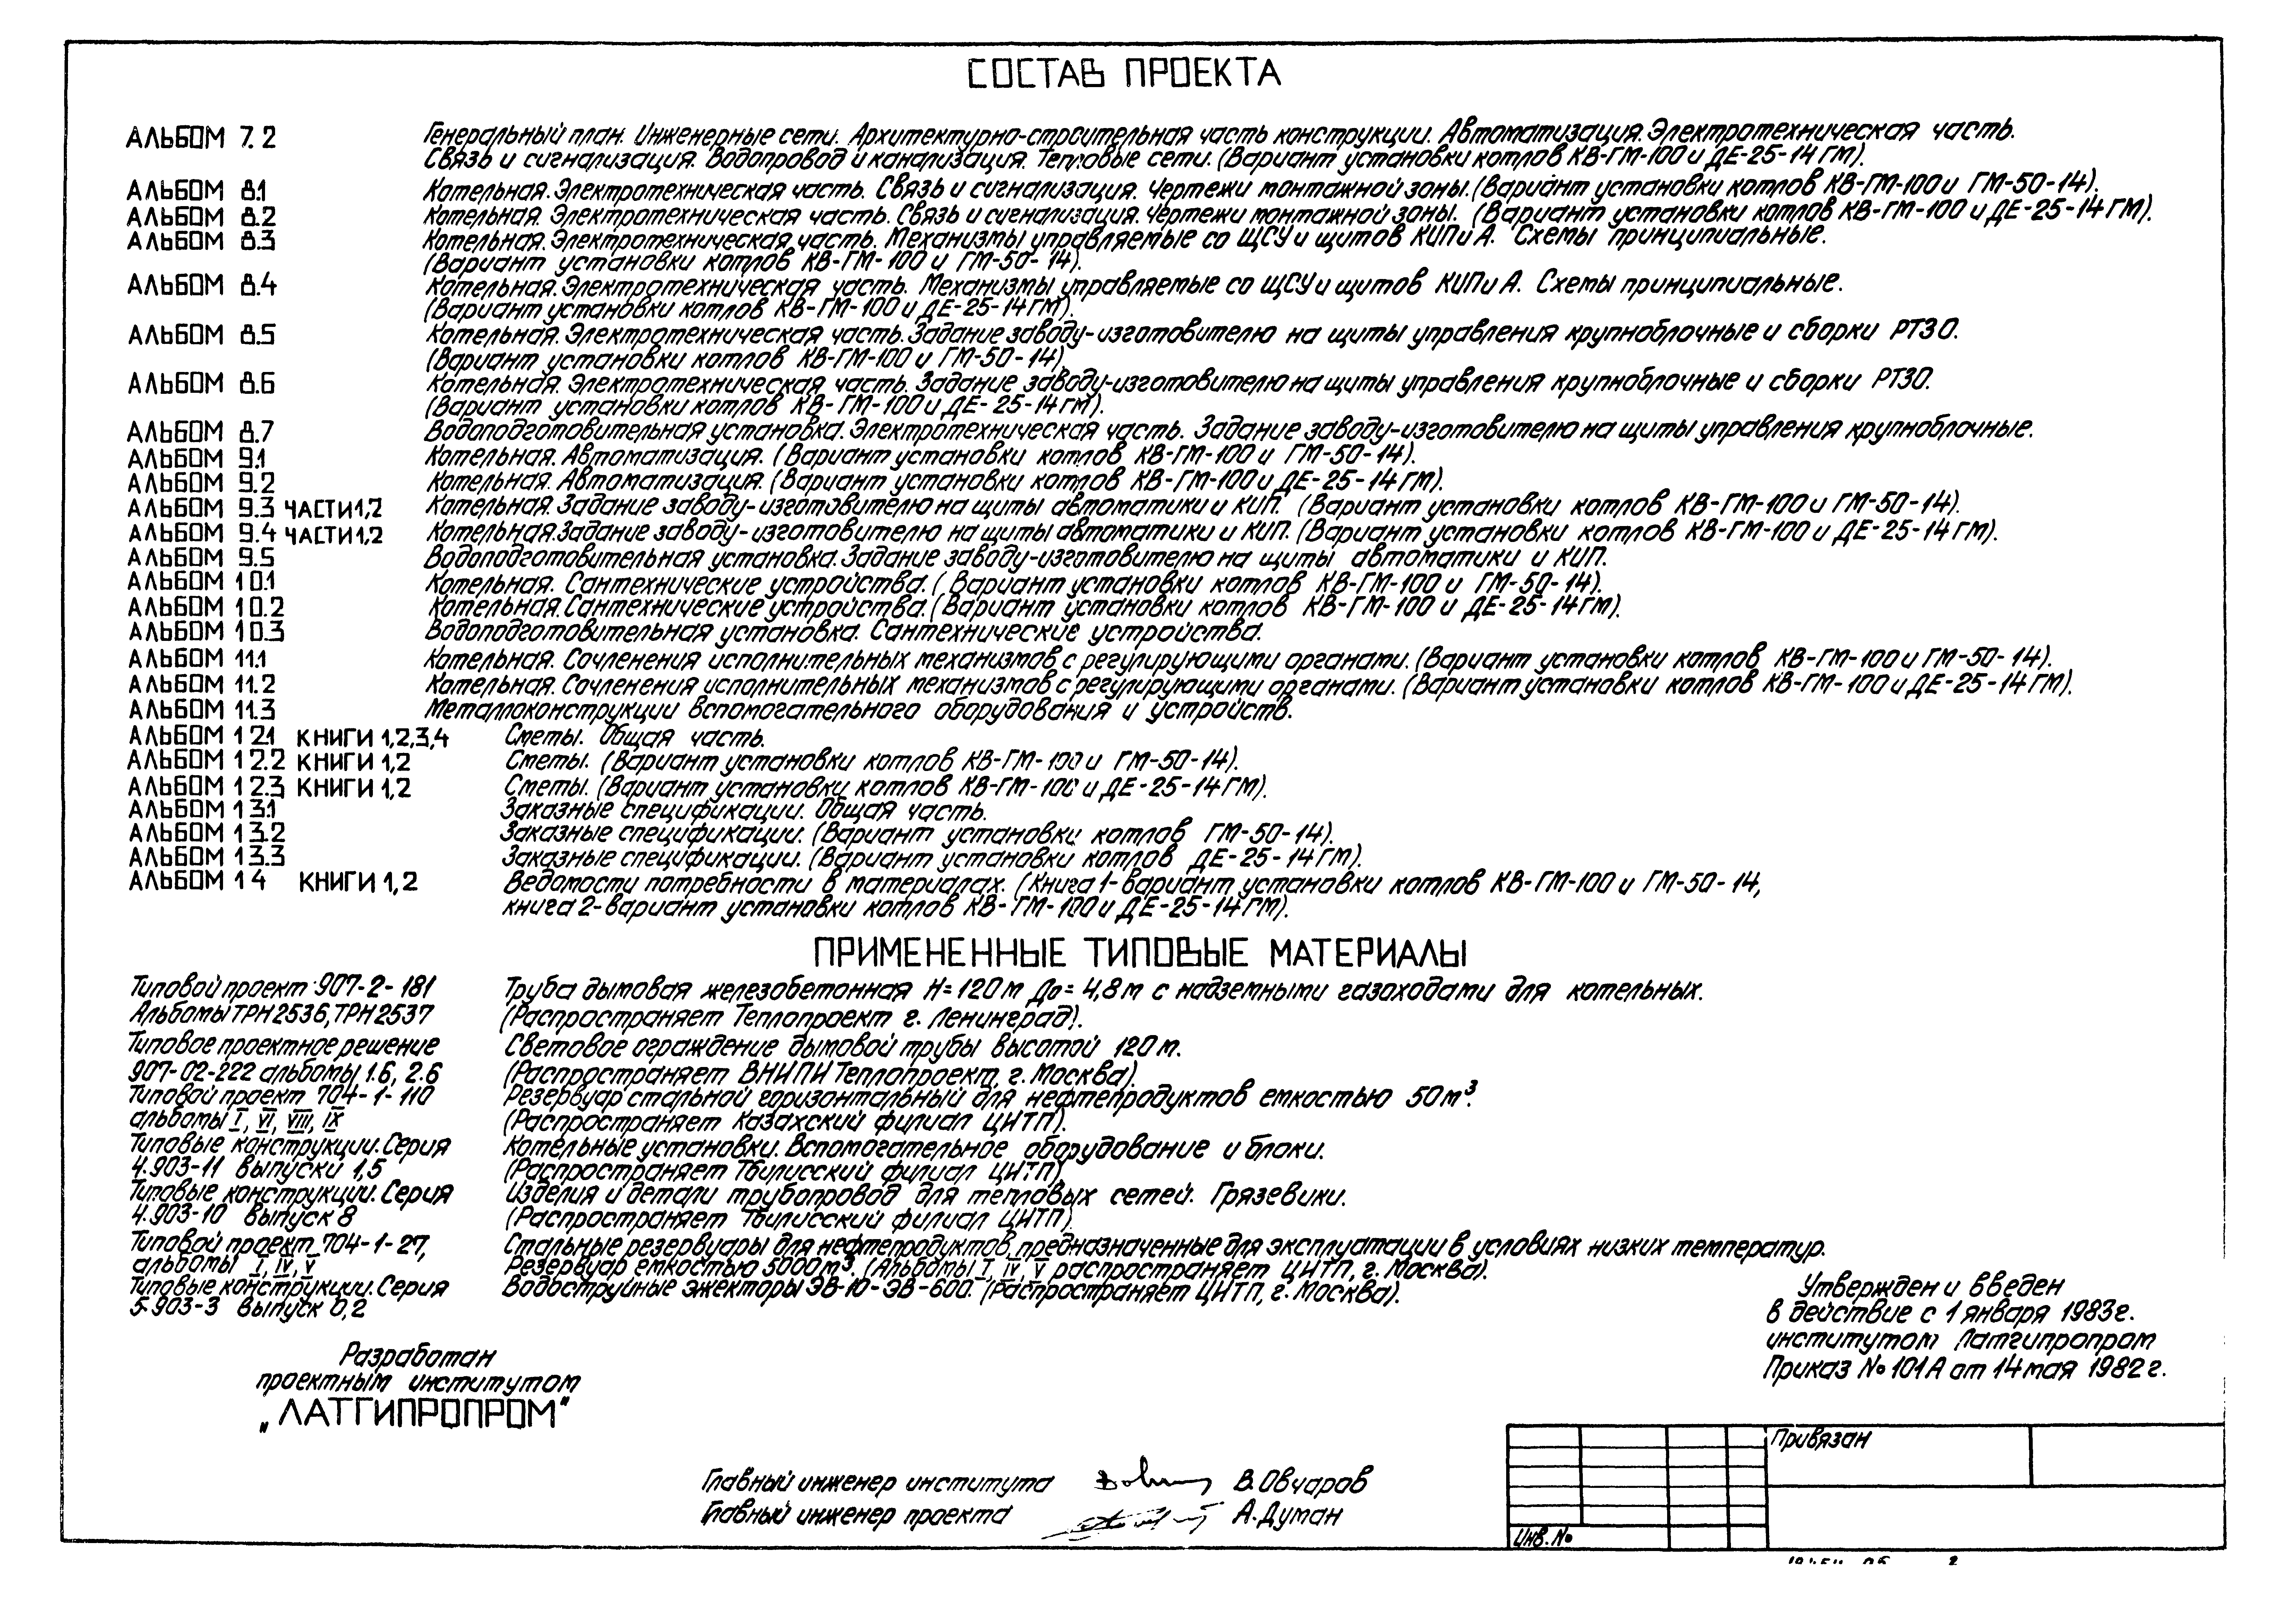 СОСТАВ ПРОЕКТА
АЛЬБОМ 7.2 Генеральный план. Инженерные сети. Архитектурно-строительная часть конструкции. Автоматизация. Электротехническая часть.
Связь и сигнализация. Водопровод и канализация. Тепловые сети. (Вариант установки котлов КВ-ГМ-100 и ДЕ-25-14 ГМ).
АЛЬБОМ 8.1 Котельная. Электротехническая часть. Связь и сигнализация. Чертежи монтажной зоны. (Вариант установки котлов КВ-ГМ-100 и ГМ-50-14).
АЛЬБОМ 8.2 Котельная. Электротехническая часть. Связь и сигнализация. Чертежи монтажной зоны. (Вариант установки котлов КВ-ГМ-100 и ДЕ-25-14 ГМ).
АЛЬБОМ 8.3 Котельная. Электротехническая часть. Механизмы управляемые со ЩСУ и щитов КИП и А. Схемы принципиальные.
(Вариант установки котлов КВ-ГМ-100 и ГМ-50-14).
АЛЬБОМ 8.4 Котельная. Электротехническая часть. Механизмы управляемые со ЩСУ и щитов КИП и А. Схемы принципиальные.
(Вариант установки котлов КВ-ГМ-100 и ДЕ-25-14 ГМ).
АЛЬБОМ 8.5 Котельная. Электротехническая часть. Задание заводу-изготовителю на щиты управления крупноблочные и сборки РТЗО.
(Вариант установки котлов КВ-ГМ-100 и ГМ-50-14)
АЛЬБОМ 8.6 Котельная. Электротехническая часть. Задание заводу-изготовителю на щиты управления крупноблочные и сборки РТЗО.
(Вариант установки котлов КВ-ГМ-100 и ДЕ-25-14 ГМ).
АЛЬБОМ 8.7 Водоподготовительная установка. Электротехническая часть. Задание заводу-изготовителю на щиты управления крупноблочные.
АЛЬБОМ 9.1 Котельная. Автоматизация. (Вариант установки котлов КВ-ГМ-100 и ГМ-50-14).
АЛЬБОМ 9.2 Котельная. Автоматизация. (Вариант установки котлов КВ-ГМ-100 и ДЕ-25-14 ГМ).
АЛЬБОМ 9.3 ЧАСТИ 1,2 Котельная. Задание заводу-изготовителю на щиты автоматики и КИП. (Вариант установки котлов КВ-ГМ-100 и ГМ-50-14).
АЛЬБОМ 9.4 ЧАСТИ 1,2 Котельная. Задание заводу-изготовителю на щиты автоматики и КИП. (Вариант установки котлов КВ-ГМ-100 и ДЕ-25-14 ГМ).
АЛЬБОМ 9.5 Водоподготовительная установка. Задание заводу-изготовителю на щиты автоматики и КИП.
АЛЬБОМ 10.1 Котельная. Сантехнические устройства. (Вариант установки котлов КВ-ГМ-100 и ГМ-50-14).
АЛЬБОМ 10.2 Котельная. Сантехнические устройства. (Вариант установки котлов КВ-ГМ-100 и ДЕ-25-14 ГМ).
АЛЬБОМ 10.3 Водоподготовительная установка. Сантехнические устройства.
АЛЬБОМ 11.1 Котельная. Сочленения исполнительных механизмов с регулирующими органами. (Вариант установки котлов КВ-ГМ-100 и ГМ-50-14).
АЛЬБОМ 11.2 Котельная. Сочленения исполнительных механизмов с регулирующими органами. (Вариант установки котлов КВ-ГМ-100 и ДЕ-25-14 ГМ).
АЛЬБОМ 11.3 Металлоконструкции вспомогательного оборудования и устройств.
АЛЬБОМ 12.1 КНИГИ 1,2,3,4 Сметы. Общая часть.
АЛЬБОМ 12.2 КНИГИ 1,2 Сметы. (Вариант установки котлов КВ-ГМ-100 и ГМ-50-14).
АЛЬБОМ 12.3 КНИГИ 1,2 Сметы. (Вариант установки котлов КВ-ГМ-100 и ДЕ-25-14 ГМ).
АЛЬБОМ 13.1 Заказные спецификации. Общая часть.
АЛЬБОМ 13.2 Заказные спецификации. (Вариант установки котлов ГМ-50-14).
АЛЬБОМ 13.3 Заказные спецификации. (Вариант установки котлов ДЕ-25-14 ГМ).
АЛЬБОМ 14 КНИГИ 1,2 Ведомости потребности в материалах. (Книга 1-вариант установки котлов КВ-ГМ-100 и ГМ-50-14,
книга 2-вариант установки котлов КВ-ГМ-100 и ДЕ-25-14 ГМ).
ПРИМЕНЕННЫЕ ТИПОВЫЕ МАТЕРИАЛЫ
Типовой проект 907-2-181 Труба дымовая железобетонная Н=120м До=4,8м с надземными газоходами для котельных.
Альбомы ТРН2536, ТРН2537 (Распространяет Теплопроект г. Ленинград).
Типовое проектное решение Световое ограждение дымовой трубы высотой 120 м.
907-02-222 альбомы 1.6, 2.6 (Распространяет ВНИПИ Теплопроект, г. Москва).
Типовой проект 704-1-110 Резервуар стальной горизонтальный для нефтепродуктов емкостью 50 м³.
альбомы I, VI, VIII, IX (Распространяет Казахский филиал ЦИТП).
Типовые конструкции. Серия Котельные установки. Вспомогательное оборудование и блоки.
4.903-11 выпуски 1,5 (Распространяет Тбилисский филиал ЦИТП)
Типовые конструкции. Серия Изделия и детали трубопровод для тепловых сетей. Грязевики.
4.903-10 выпуск 8 (Распространяет Тбилисский филиал ЦИТП)
Типовой проект 704-1-27, Стальные резервуары для нефтепродуктов, предназначенные для эксплуатации в условиях низких температур.
альбомы I, IV, V Резервуар емкостью 5000 м³. (Альбомы I, IV, V распространяет ЦИТП, г. Москва).
Типовые конструкции. Серия Водоструйные эжекторы ЭВ-10-ЭВ-600. (Распространяет ЦИТП, г. Москва).
5.903-3 выпуск 0,2
Утвержден и введен
в действие с 1 января 1983г.
институтом Латгипропром
Приказ № 101А от 14 мая 1982 г.
Разработан
проектным институтом
„ЛАТГИПРОПРОМ"
Главный инженер института В. Овчаров
Главный инженер проекта А. Думан
Привязан
Инв. №